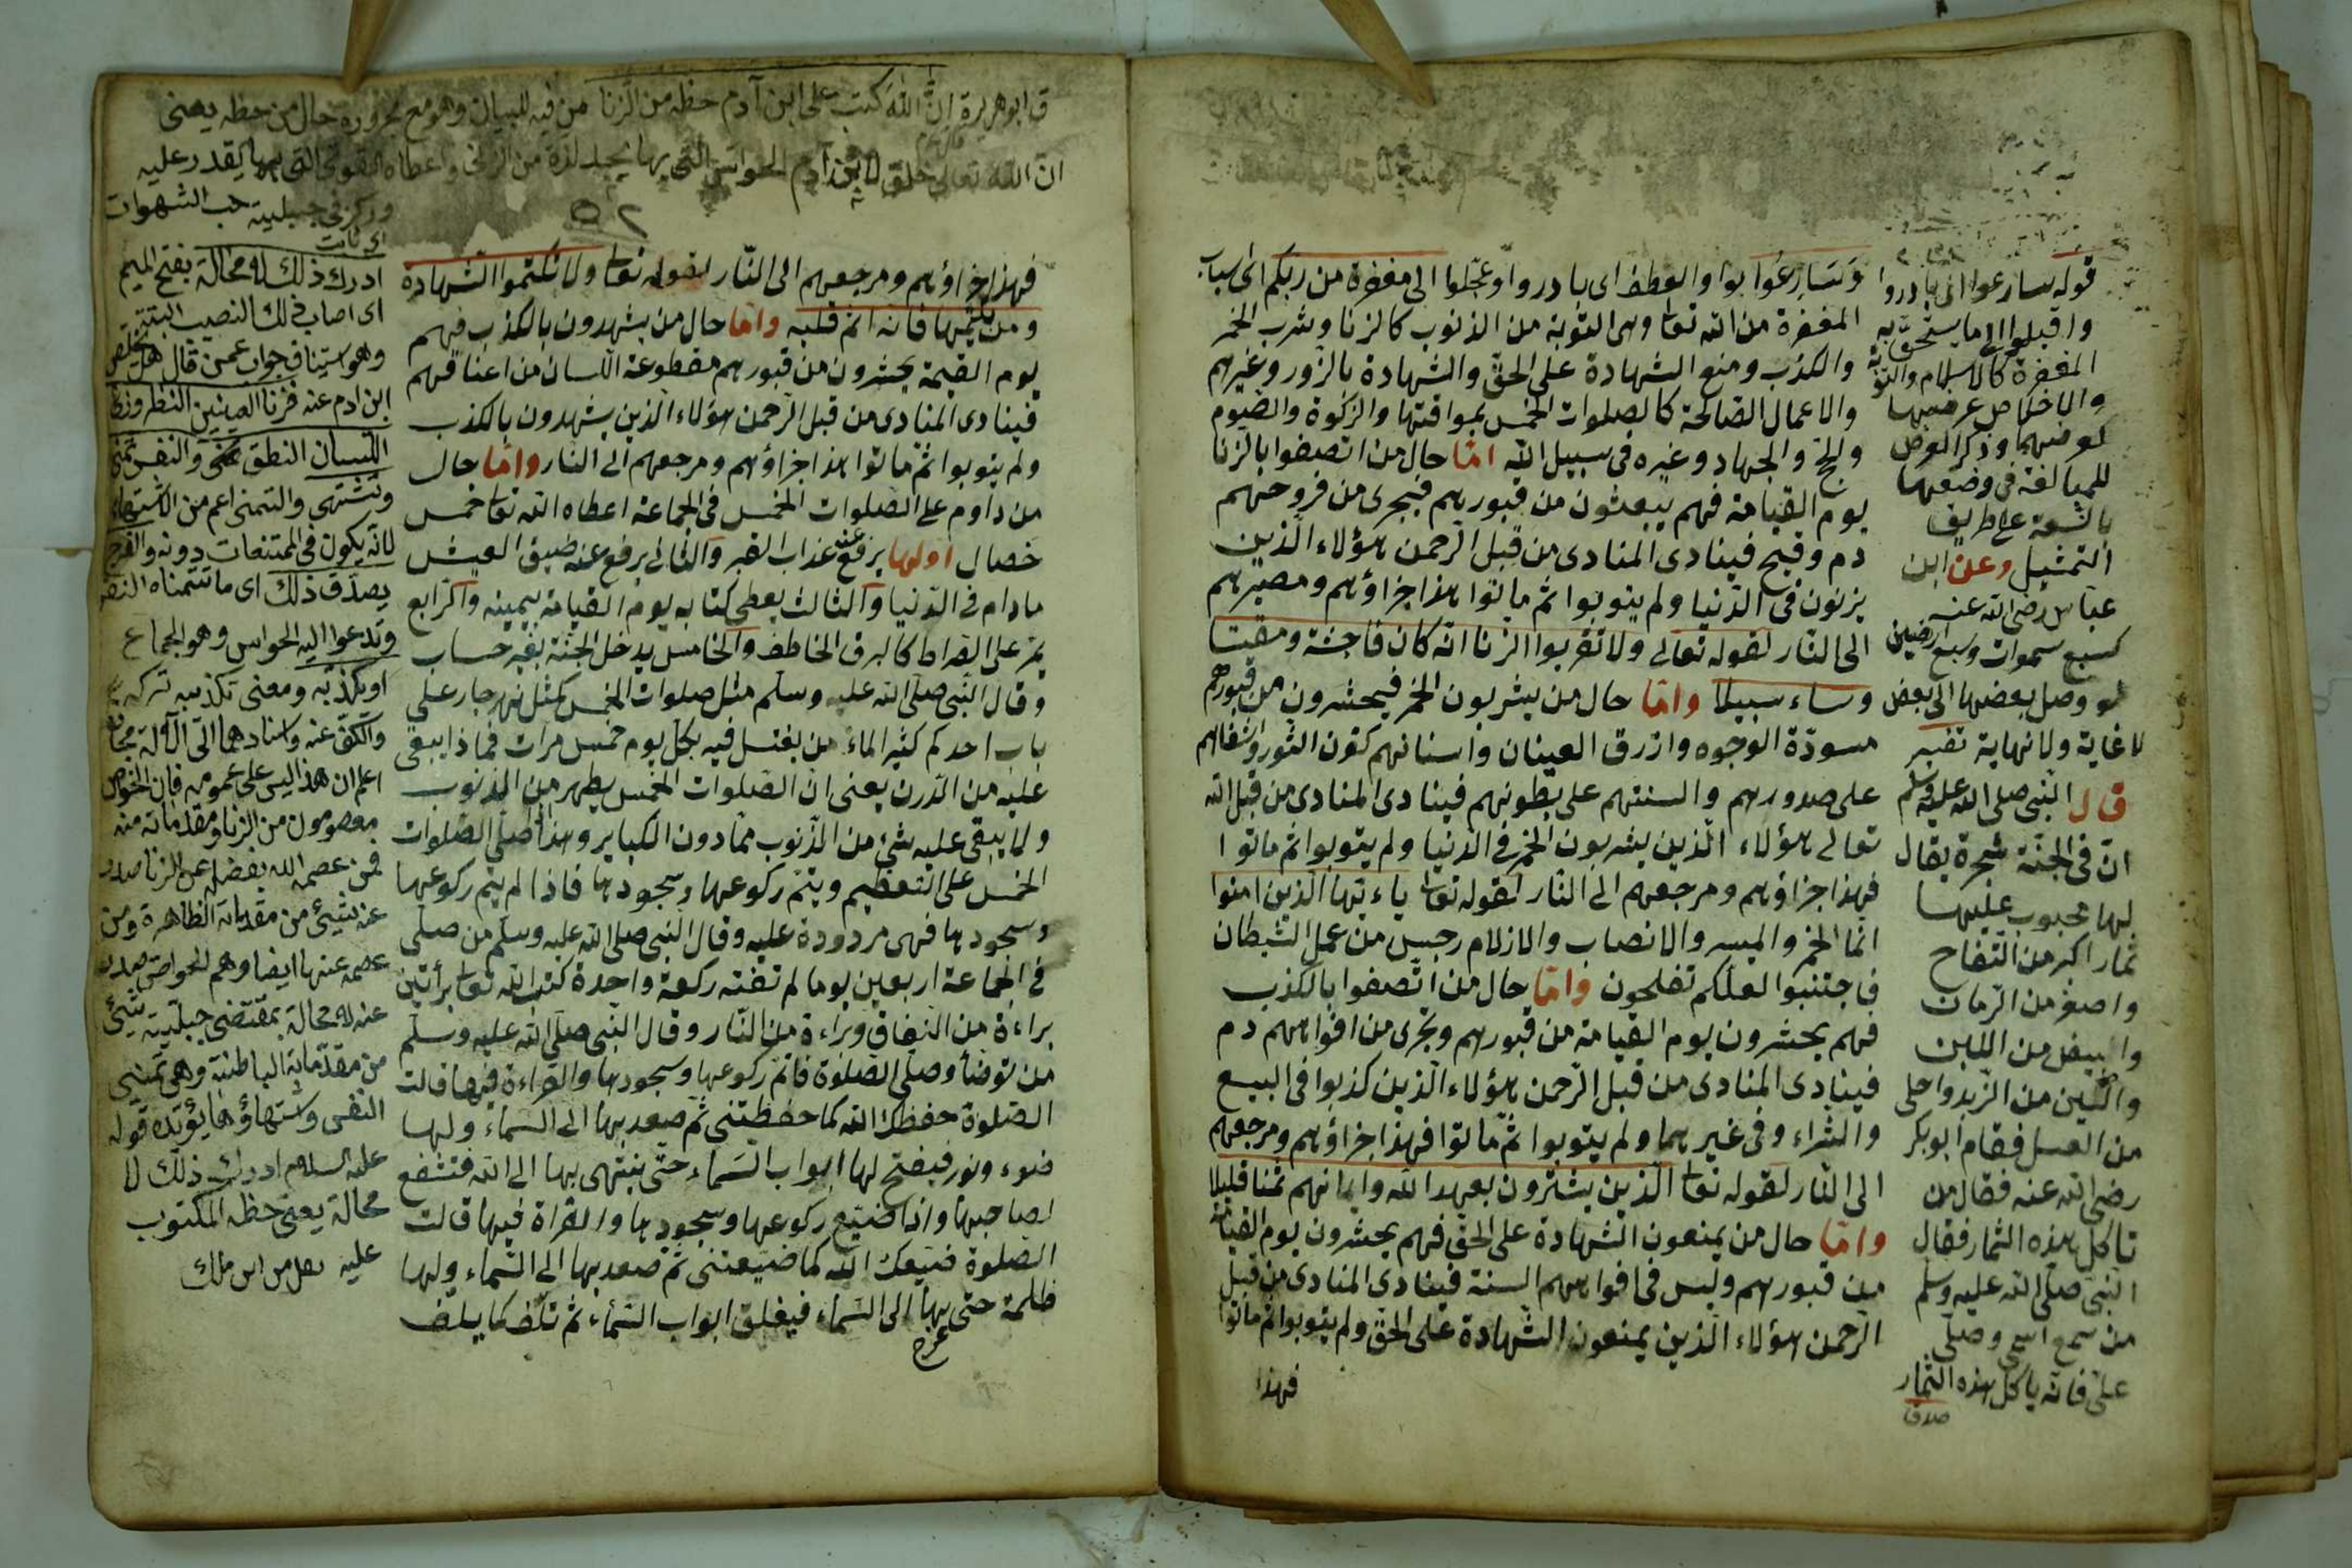 وَسَارِعُوا بواو العطف اى بادروا وعجّلوا الى مغفرة من ربكم اى اسباب
المغفرة من الله تعا وهى التوبة من الذنوب كالزنا وشرب الخمر
والكذب ومنع الشهادة على الحقّ والشهادة بالزور وغيرهم
والاعمال الصّالحة كالصلوات الخمس بمواقتها والزكوة والصّوم
والحجّ والجهاد وغيره فى سبيل الله امّا حال من اتصفوا بالزنا
يوم القيامة فهم يبعثون من قبورهم فيجرى من فروجهم
دم وقيح فينادى المنادى من قبل الرّحمن هؤلاء الّذين
يزنون فى الدّنيا ولم يتوبوا ثم ماتوا هذا جزاؤهم ومصيرهم
الى النّار لقوله تعالى ولا تقربوا الزنا انّه كان فاحشة ومقتا
وساء سبيلا وامّا حال من يشربون الخمر فيحشرون من قبورهم
مسودّة الوجوه وازرق العينان واسنانهم كقرن الثّور واشفالهم
على صدورهم والسنتهم على بطونهم فينادى المنادى من قبل الله
تعالى هؤلاء الّذين يشربون الخمر فى الدّنيا ولم يتوبوا ثم ماتوا
فهذا جزاؤهم ومرجعهم الى النّار لقوله تعا ياءيّها الّذين امنوا
انّما الخمر والميسر والانصاب والازلام رجس من عمل الشيطان
فاجتنبوا لعلّكم تفلحون وامّا حال من اتّصفوا بالكذب
فهم يحشرون يوم القيامة من قبورهم وتجرى من افواههم دم
فينادى المنادى من قبل الرّحمن هؤلاء الّذين كذبوا فى البيع
والشّراء وفى غيرهما ولم يتوبوا ثمّ ماتوا فهذا جزاؤهم ومرجعهم
الى النّار لقوله تعا الّذين يشترون بعهد الله وايمانهم ثمنا قليلا
وامّا حال من يمنعون الشّهادة على الحقّ فهم يحشرون يوم القيامة
من قبورهم وليس فى افواههم السنة فينادى المنادى من قبل
الرّحمن هؤلاء الّذين يمنعون الشّهادة على الحقّ ولم يتوبوا ثم ماتوا
فهذا
قوله سارعوا اى بادروا
واقبلوا الى ما يستحق به
المغفرة كالاسلام والتوبة
والاخلاص عرضها
كعرضهما وذكر العرض
للمبالغة فى وصفها
بالسّعة على طريق
التمثيل وعن ابن
عبّاس رضى الله عنه
كسبع سموات وسبع ارضين
لو وصل بعضها الى بعض
لا غاية ولا نهاية تفسير
قال النّبى صلى الله عليه وسلم
انّ فى الجنّة شجرة يقال
لها محبوب عليها
ثمار اكبر من التفاح
واصغر من الرّمان
وابيض من اللبن
والين من الزّبد واحلى
من العسل فقام ابو بكر
رضى الله عنه فقال من
تاكل هذه الثمار فقال
النّبى صلى الله عليه وسلم
من سمع اسمى وصلّى
علىّ فانّه ياكل هذه الثّمار
ق ابو هريرة انّ الله كتب على ابن آدم حظه من الزنا من فيه للبيان وهو مع مجروره حال من حظه يعنى
انّ الله تعالى خلق لابن آدم الحواسّ التى بها يجد لذة من الزنى واعطاه القوى التى بها يقدر عليه
وركز فى جبليته حب الشهوات
٥٢
فهذا جزاؤهم ومرجعهم الى النّار لقوله تعا ولا تكتموا الشّهادة
ومن يكتمها فانّه اثم قلبه وامّا حال من يشهدون بالكذب فهم
يوم القيمة يحشرون من قبورهم مقطوعة اللّسان من اعناقهم
فينادى المنادى من قبل الرّحمن هؤلاء الّذين يشهدون بالكذب
ولم يتوبوا ثمّ ماتوا هذا جزاؤهم ومرجعهم الى النّار وامّا حال
من داوم على الصّلوات الخمس فى الجماعة اعطاه الله تعا خمس
خصال اوّلها يرفع عنه عذاب القبر والثّانى يرفع عنه ضيق العيش
مادام فى الدّنيا والثالث يعطى كتابه يوم القيامة بيمينه والرّابع
يمرّ على الصّراط كالبرق الخاطف والخامس يدخل الجنّة بغير حساب
وقال النّبى صلّى الله عليه وسلّم مثل صلوات الخمس كمثل نهر جار على
باب احدكم كثير الماء من يغتسل فيه بكلّ يوم خمس مرات فماذا يبقى
عليه من الدّرن يعنى انّ الصّلوات الخمس يطهر من الذنوب
ولا يبقى عليه شئ من الذّنوب ممّا دون الكبائر وهذا اصلّى الصّلوات
الخمس على التعظيم ويتمّ ركوعها وسجودها فاذا لم يتم ركوعها
وسجودها فهى مردودة عليه وقال النّبى صلى الله عليه وسلّم من صلّى
فى الجماعة اربعين يوما لم تفته ركعة واحدة كتب الله تعا برأتين
براءة من النّفاق وبراءة من النّار وقال النّبى صلّى الله عليه وسلّم
من توضأ وصلّى الصّلوة فاتمّ ركوعها وسجودها والقراءة فيها قالت
الصّلوة حفظك الله كما حفظتنى ثم صعد بها الى السّماء ولها
ضوء ونور فيفتح لها ابواب السّماء حتّى ينتهى بها الى الله فتشفع
لصاحبها واذا ضيّع ركوعها وسجودها والقراة فيها قالت
الصّلوة ضيّعك الله كما ضيّعتنى ثمّ صعد بها الى السّماء ولها
ظلمة حتّى عرج بها الى السّماء فيغلق ابواب السّماء ثم تلفّ كما يلفّ
ادرك ذلك لا محالة بفتح الميم
اى اصاب ذلك النصيب البتة
وهو استيناف جواب عمن قال هل يخلص
ابن ادم عنه فزنا العينين النظر وزنا
اللسان النطق تمنّى والنفس تمنى
وتشتهى والتمنى اعم من الاشتهاء
لانّه يكون فى الممتنعات دونه والفرج
يصدّق ذلك اى ما تتمناه النفس
وتدعوا اليه الحواس وهو الجماع
او يكذّبه ومعنى تكذيبه تركه
والكفّ عنه واسنادهما الى الآلة مجاز
اعلم ان هذا ليس على عمومه فان الخواص
معصومون من الزنا ومقدماته منه
فمن عصمه الله بفضله عن الزنا صدر
عنه شيئ من مقدماته الظاهرة ومن
عصمه عنها ايضا وهم الخواص صدر
عنه لا محالة بمقتضى جبلّيته شيئ
من مقدّماته الباطنة وهى تمنى
النفس واشتهاؤها يؤيّده قوله
عليه السلام ادرك ذلك لا
محالة يعنى حظه المكتوب
عليه نقل من ابن ملك